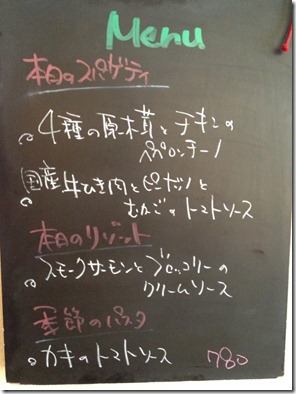 Menu
本日のスパゲティ
4種の原木茸とチキンの
ペペロンチーノ
国産牛ひき肉とピーナツと
むかごのトマトソース
本日のリゾット
スモークサーモンとブロッコリーの
クリームソース
季節のパスタ
カキのトマトソース 780